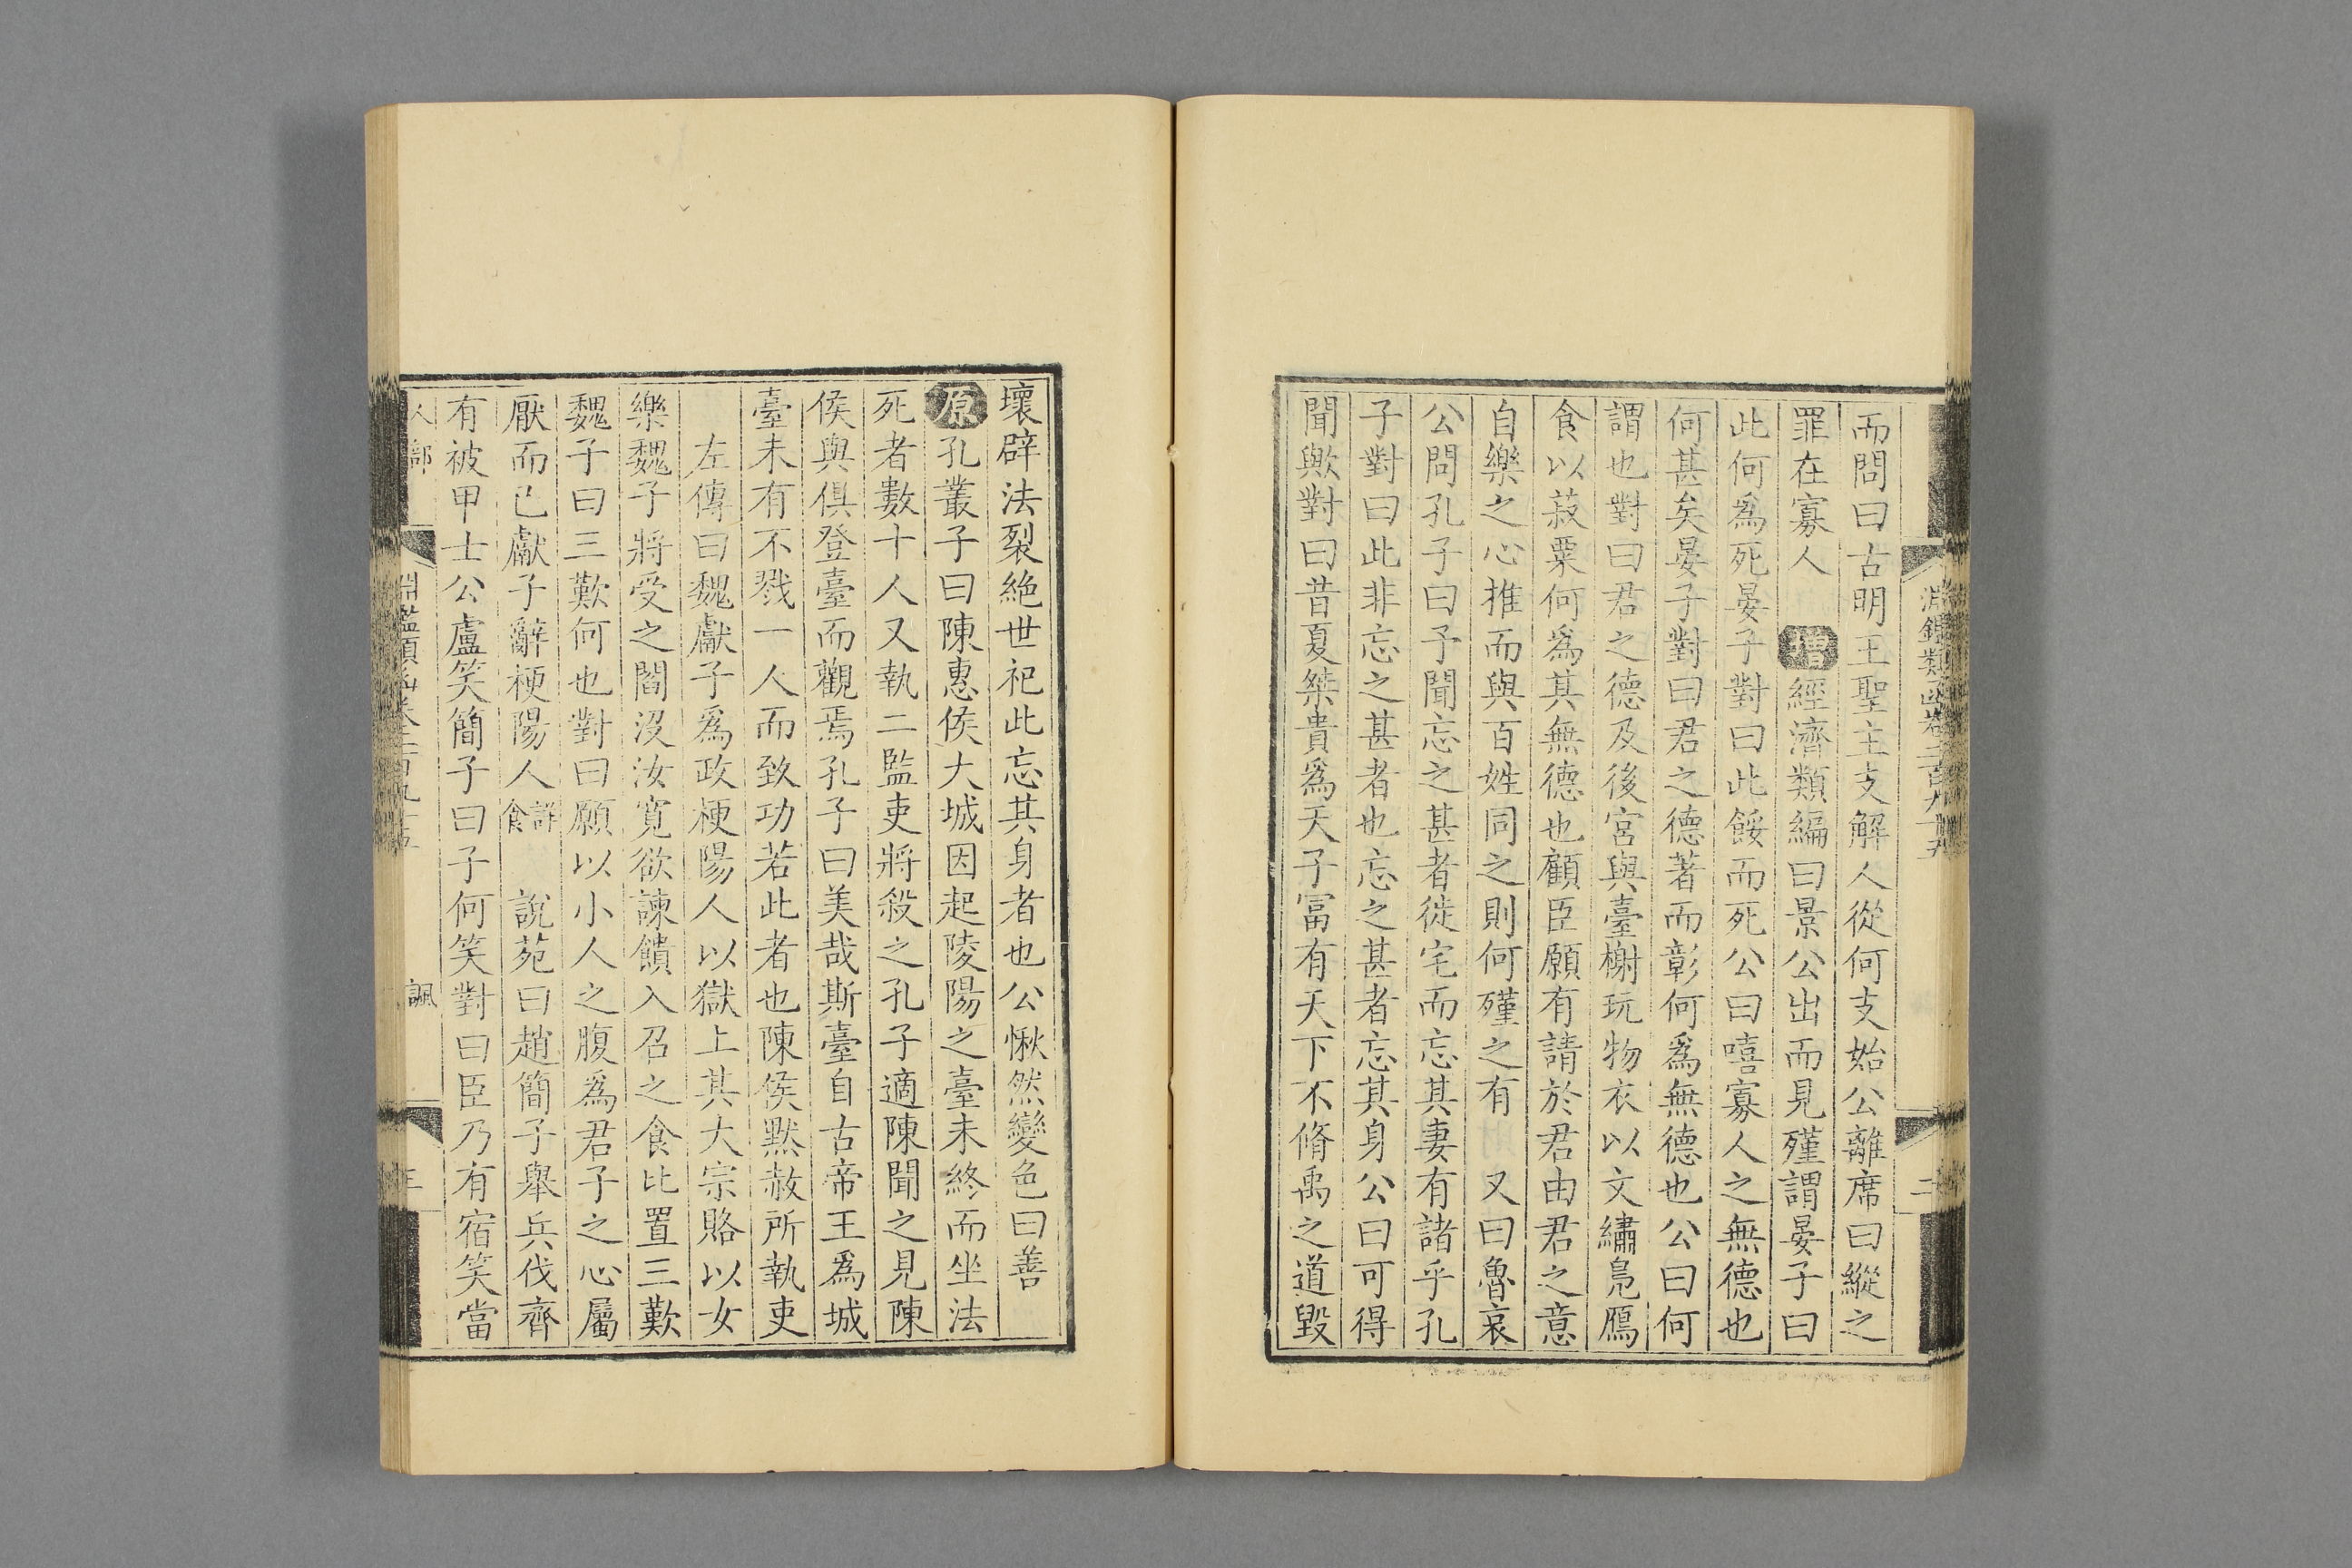 淵鑑類函卷二百九十五
二
而問曰古明王聖主支解人從何支始公離席曰縱之
罪在寡人 增經濟類編曰景公出而見殣謂晏子曰
此何爲死晏子對曰此餒而死公曰嘻寡人之無德也
何甚矣晏子對曰君之德著而彰何爲無德也公曰何
謂也對曰君之德及後宮與臺榭玩物衣以文繡鳧鴈
食以菽粟何爲其無德也顧臣願有請於君由君之意
自樂之心推而與百姓同之則何殣之有 又曰魯哀
公問孔子曰予聞忘之甚者徙宅而忘其妻有諸乎孔
子對曰此非忘之甚者也忘之甚者忘其身公曰可得
聞歟對曰昔夏桀貴爲天子富有天下不脩禹之道毀
壞辟法裂絶世祀此忘其身者也公愀然變色曰善
原孔叢子曰陳惠侯大城因起陵陽之臺未終而坐法
死者數十人又執二監吏將殺之孔子適陳聞之見陳
侯與俱登臺而觀焉孔子曰美哉斯臺自古帝王爲城
臺未有不戮一人而致功若此者也陳侯默赦所執吏
左傳曰魏獻子爲政梗陽人以獄上其大宗賂以女
樂魏子將受之閻沒汝寬欲諫饋入召之食比置三歎
魏子曰三歎何也對曰願以小人之腹爲君子之心屬
厭而已獻子辭梗陽人詳食 說苑曰趙簡子舉兵伐齊
有被甲士公盧笑簡子曰子何笑對曰臣乃有宿笑當
人部
淵鑑類函卷二百九十五
諷
三